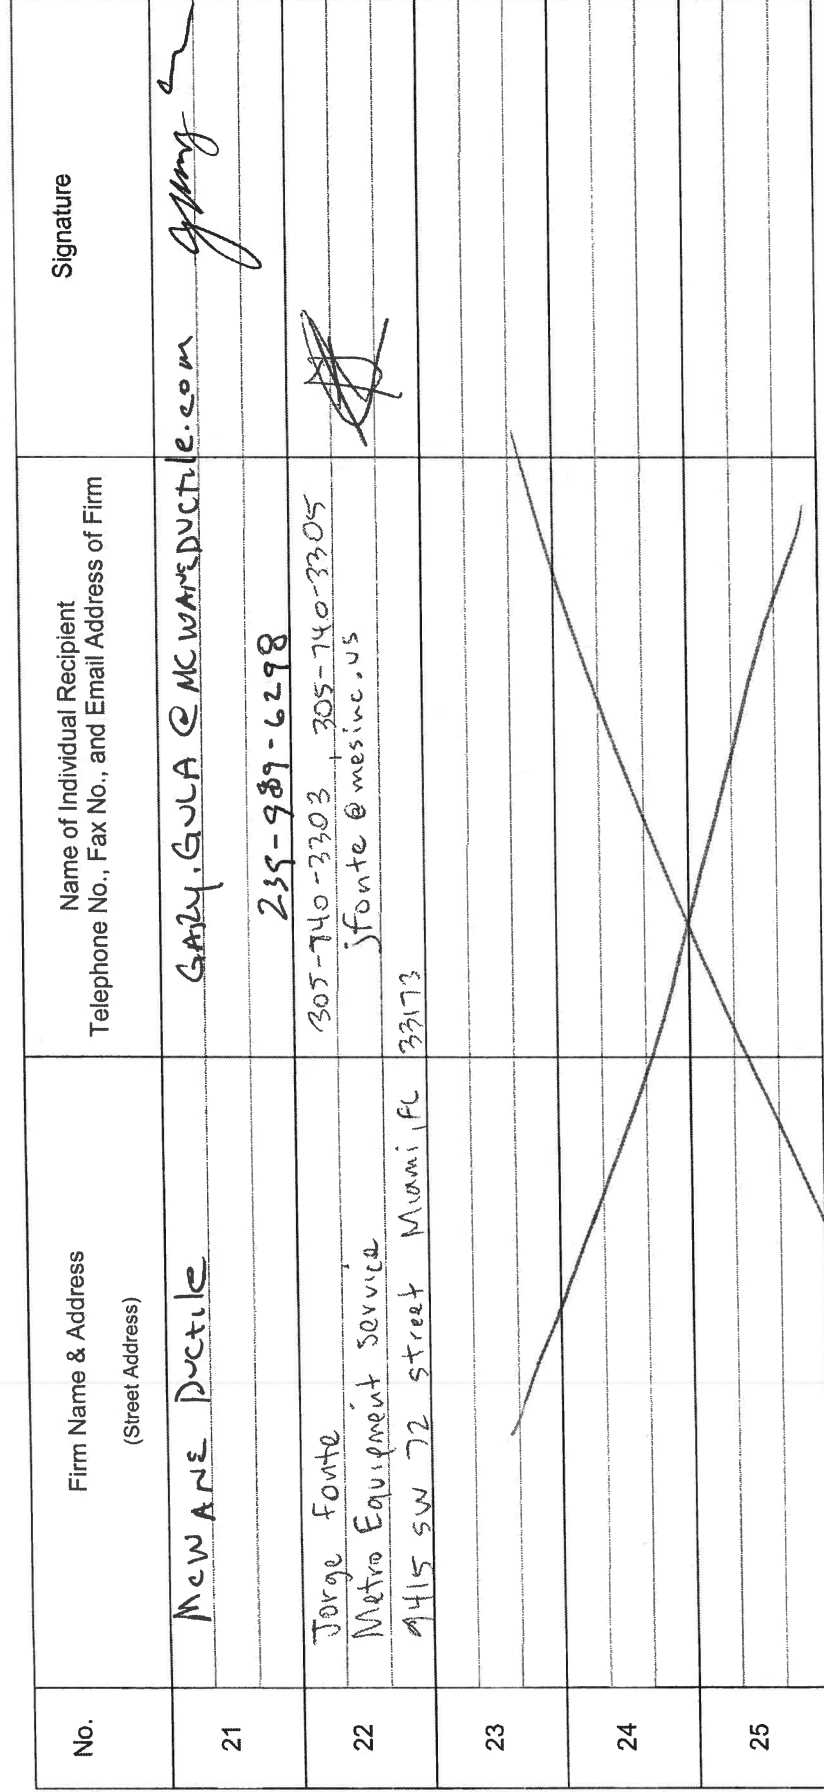 No.
Firm Name & Address
(Street Address)
Name of Individual Recipient
Telephone No., Fax No., and Email Address of Firm
Signature
21
McWANE Ductile
GARY.GULA @ MCWANEDUCTile.com
239-989-6298
22
Jorge Fonte
Metro Equipment Service
9415 SW 72 street Miami, FL 33173
305-740-3303, 305-740-3305
jfonte@mesinc.us
23
24
25